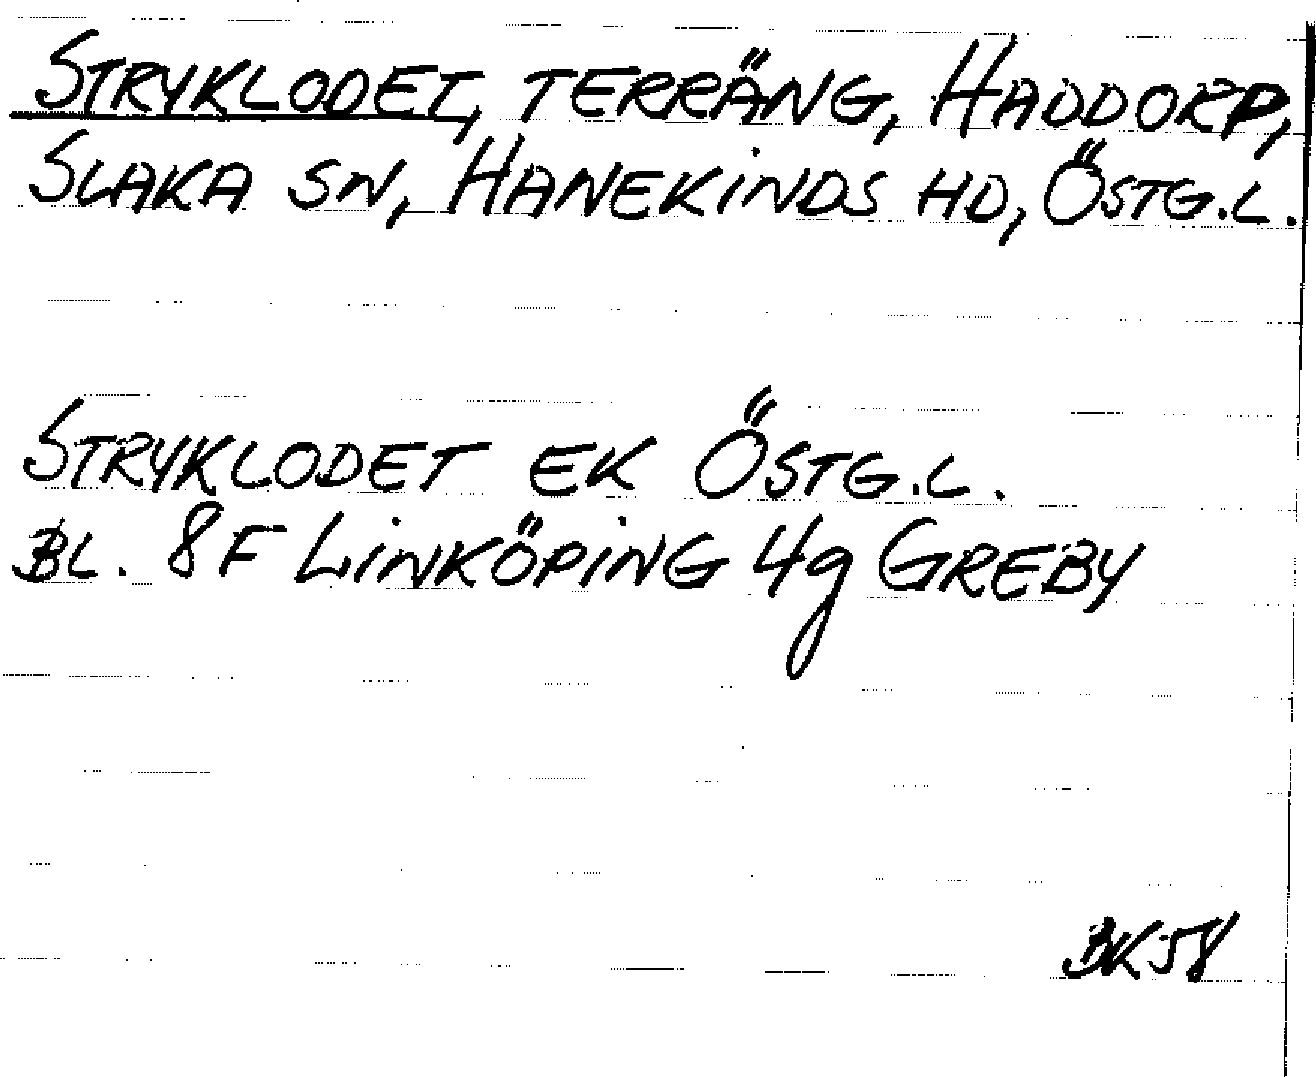 STRYKLODET, TERRÄNG, HADDORP,
SLAKA SN, HANEKINDS HD, ÖSTG.L.
STRYKLODET EK ÖSTG.L.
BL. 8F LINKÖPING 4g GREBY